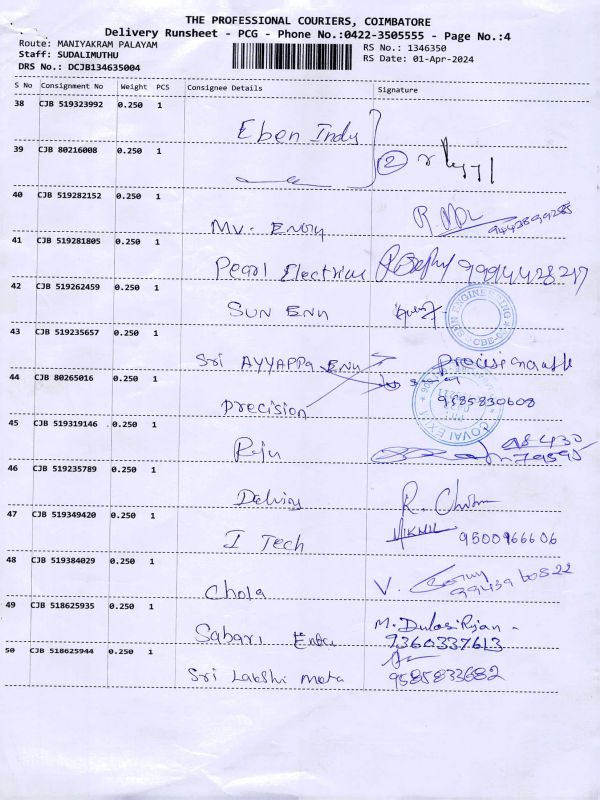 THE PROFESSIONAL COURIERS, COIMBATORE
Delivery Runsheet - PCG - Phone No.:0422-3505555 - Page No.:4
Route: MANIYAKRAM PALAYAM
RS No.: 1346350
Staff: SUDALIMUTHU
RS Date: 01-Apr-2024
DRS No.: DCJB134635004
S No Consignment No Weight PCS Consignee Details Signature
38 CJB 519323992 0.250 1 Eben Indu
39 CJB 80216008 0.250 1 2
40 CJB 519282152 0.250 1 Mv. Engy
41 CJB 519281805 0.250 1 Pearl Electrical
42 CJB 519262459 0.250 1 SUN ENN
43 CJB 519235657 0.250 1 Sri AYYAPPA ENN
44 CJB 80265016 0.250 1 Precision 9585830608
45 CJB 519319146 0.250 1 Raju
46 CJB 519235789 0.250 1 R.
47 CJB 519349420 0.250 1 I Tech NIKHIL 9500966606
48 CJB 519384029 0.250 1 Chola V.
49 CJB 518625935 0.250 1 Sabari M. 9360337613
50 CJB 518625944 0.250 1 Sri Lakshi meta 9585833682